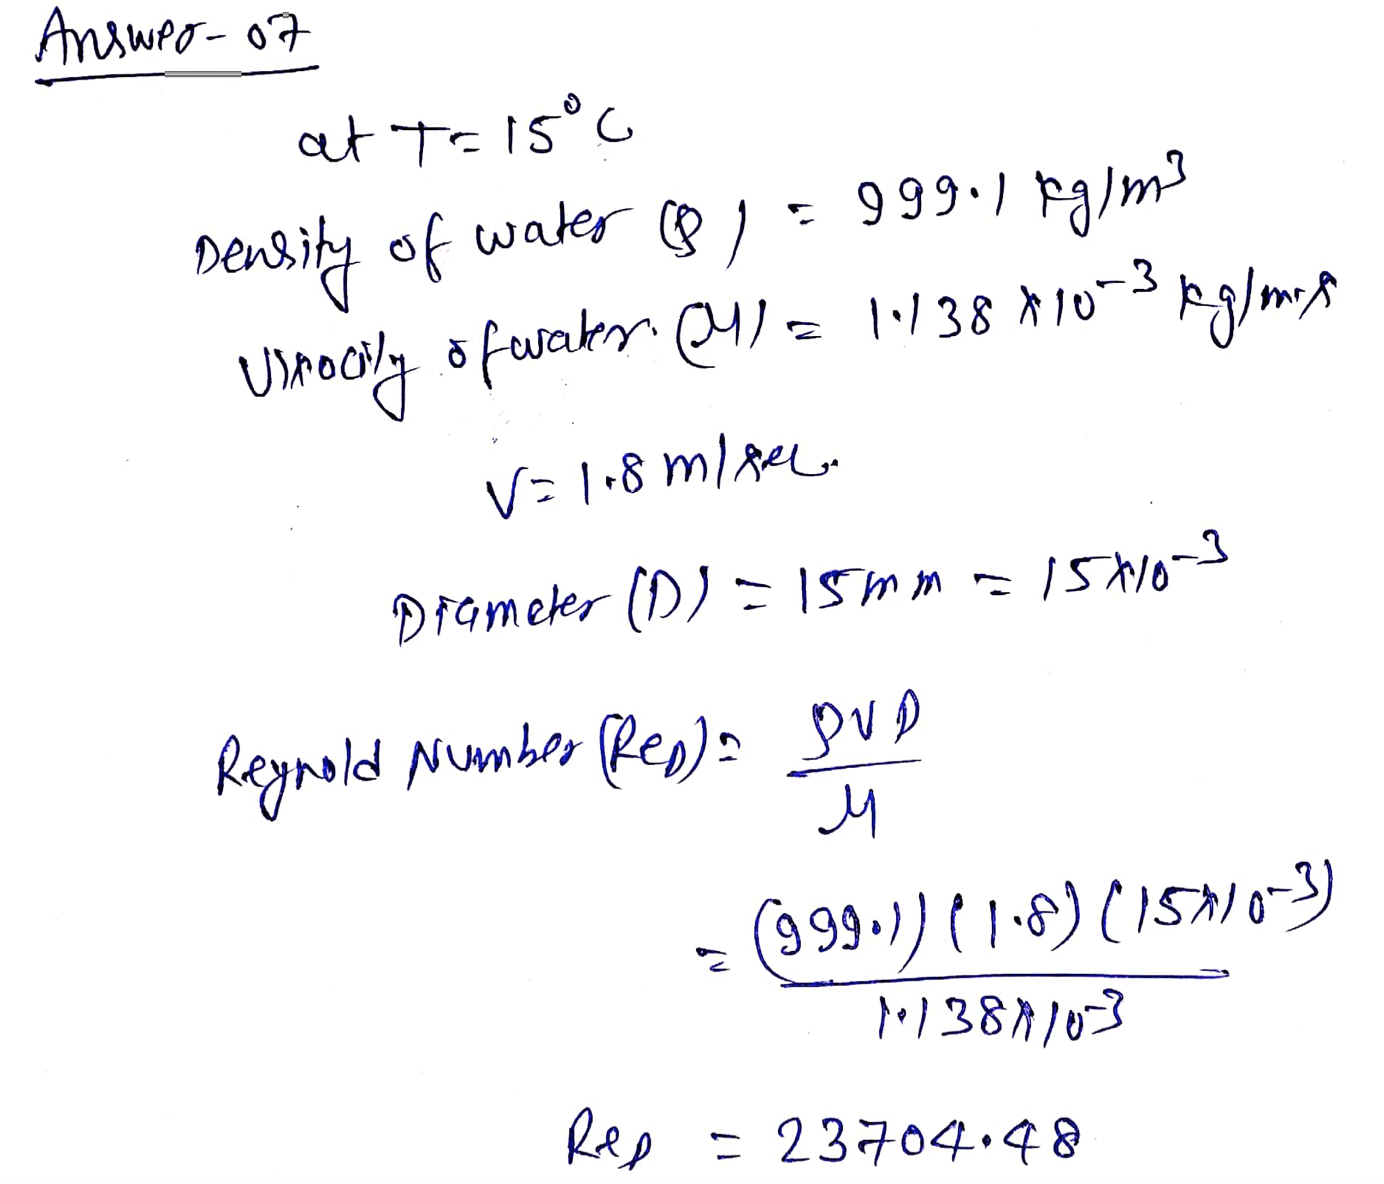 Answer-07
at T = 15°C
Density of water (ρ) = 999.1 kg/m³
Viscosity of water (μ) = 1.138 × 10⁻³ kg/m·s
V = 1.8 m/sec.
Diameter (D) = 15mm = 15×10⁻³
Reynold Number (Re_D) = ρVD / μ
= (999.1) (1.8) (15×10⁻³) / 1.138×10⁻³
Re_D = 23704.48